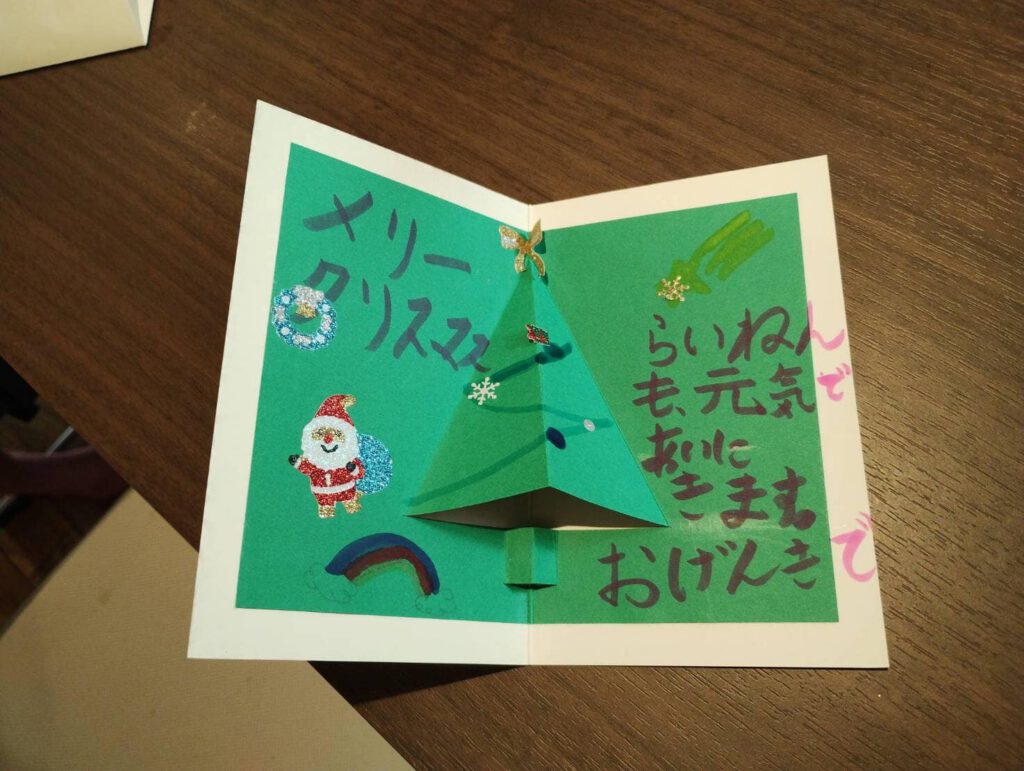 メリー
クリスマス
らいねん
も、元気で
あいに
きます
おげんきで